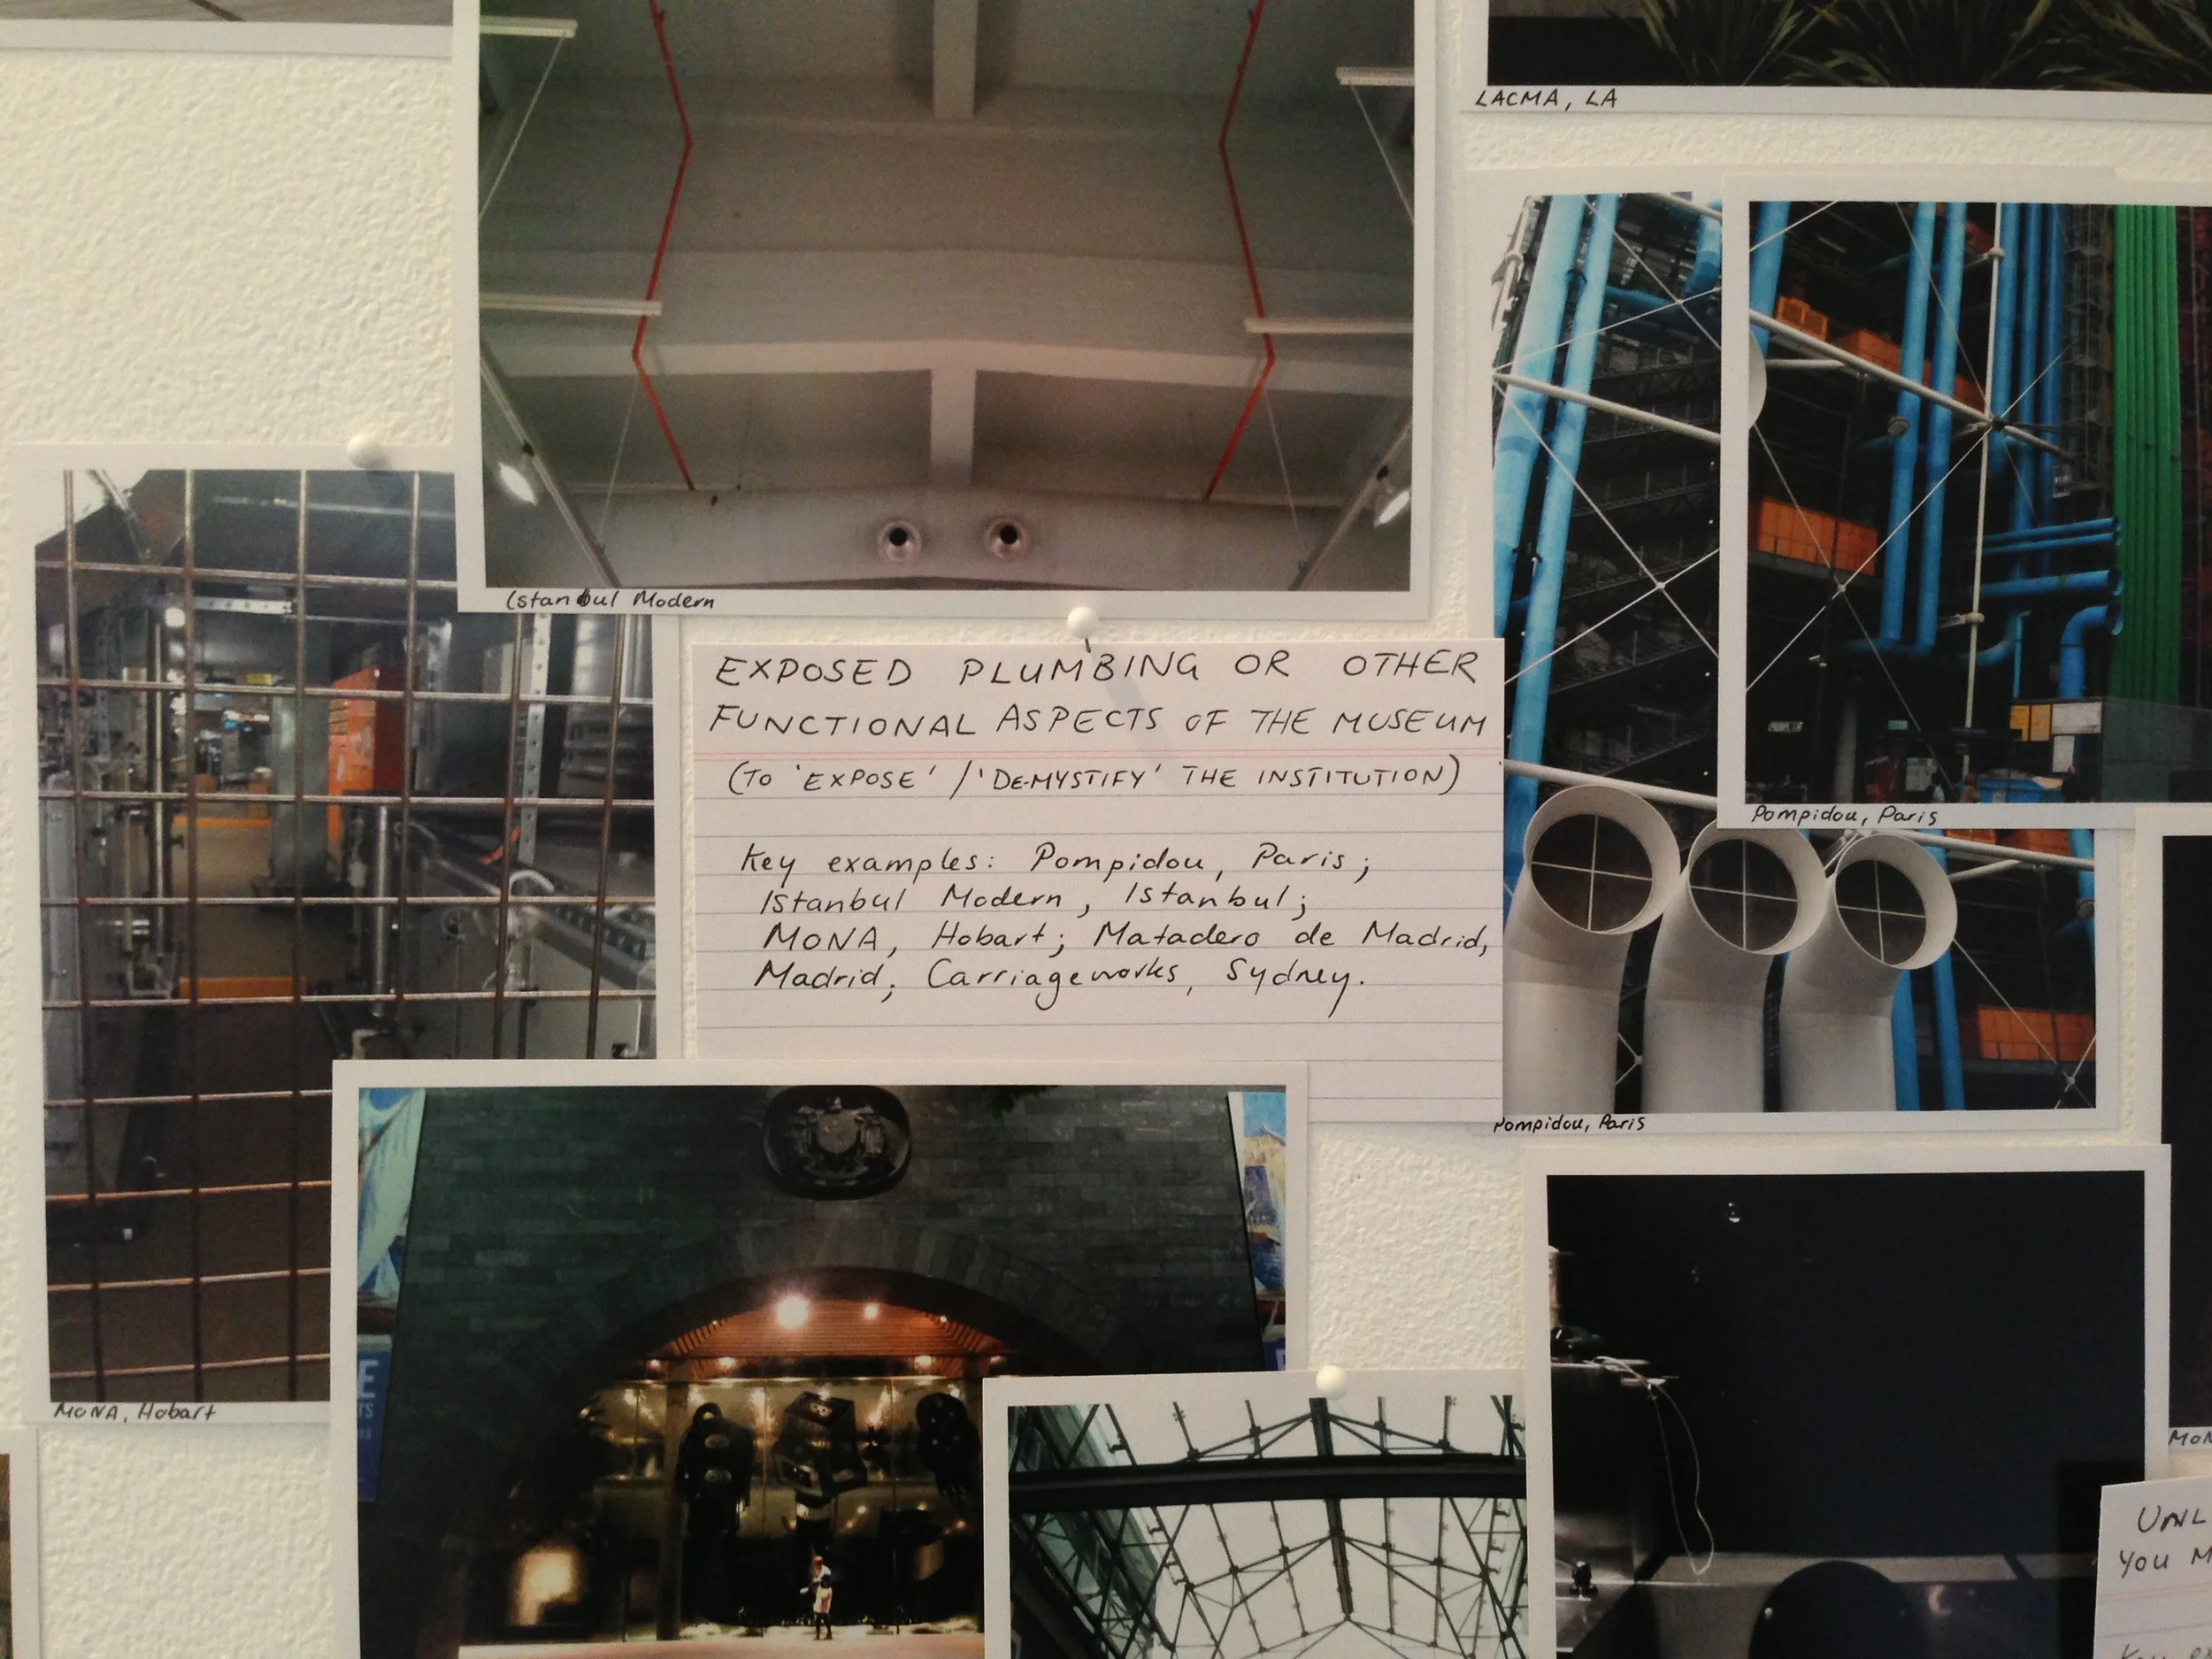 LACMA, LA
Istanbul Modern
EXPOSED PLUMBING OR OTHER
FUNCTIONAL ASPECTS OF THE MUSEUM
(TO 'EXPOSE' / 'DE-MYSTIFY' THE INSTITUTION)
Key examples: Pompidou, Paris;
Istanbul Modern, Istanbul;
MONA, Hobart; Matadero de Madrid,
Madrid; Carriageworks, Sydney.
Pompidou, Paris
Pompidou, Paris
MONA, Hobart
E
TS
MON
UNL
YOU M